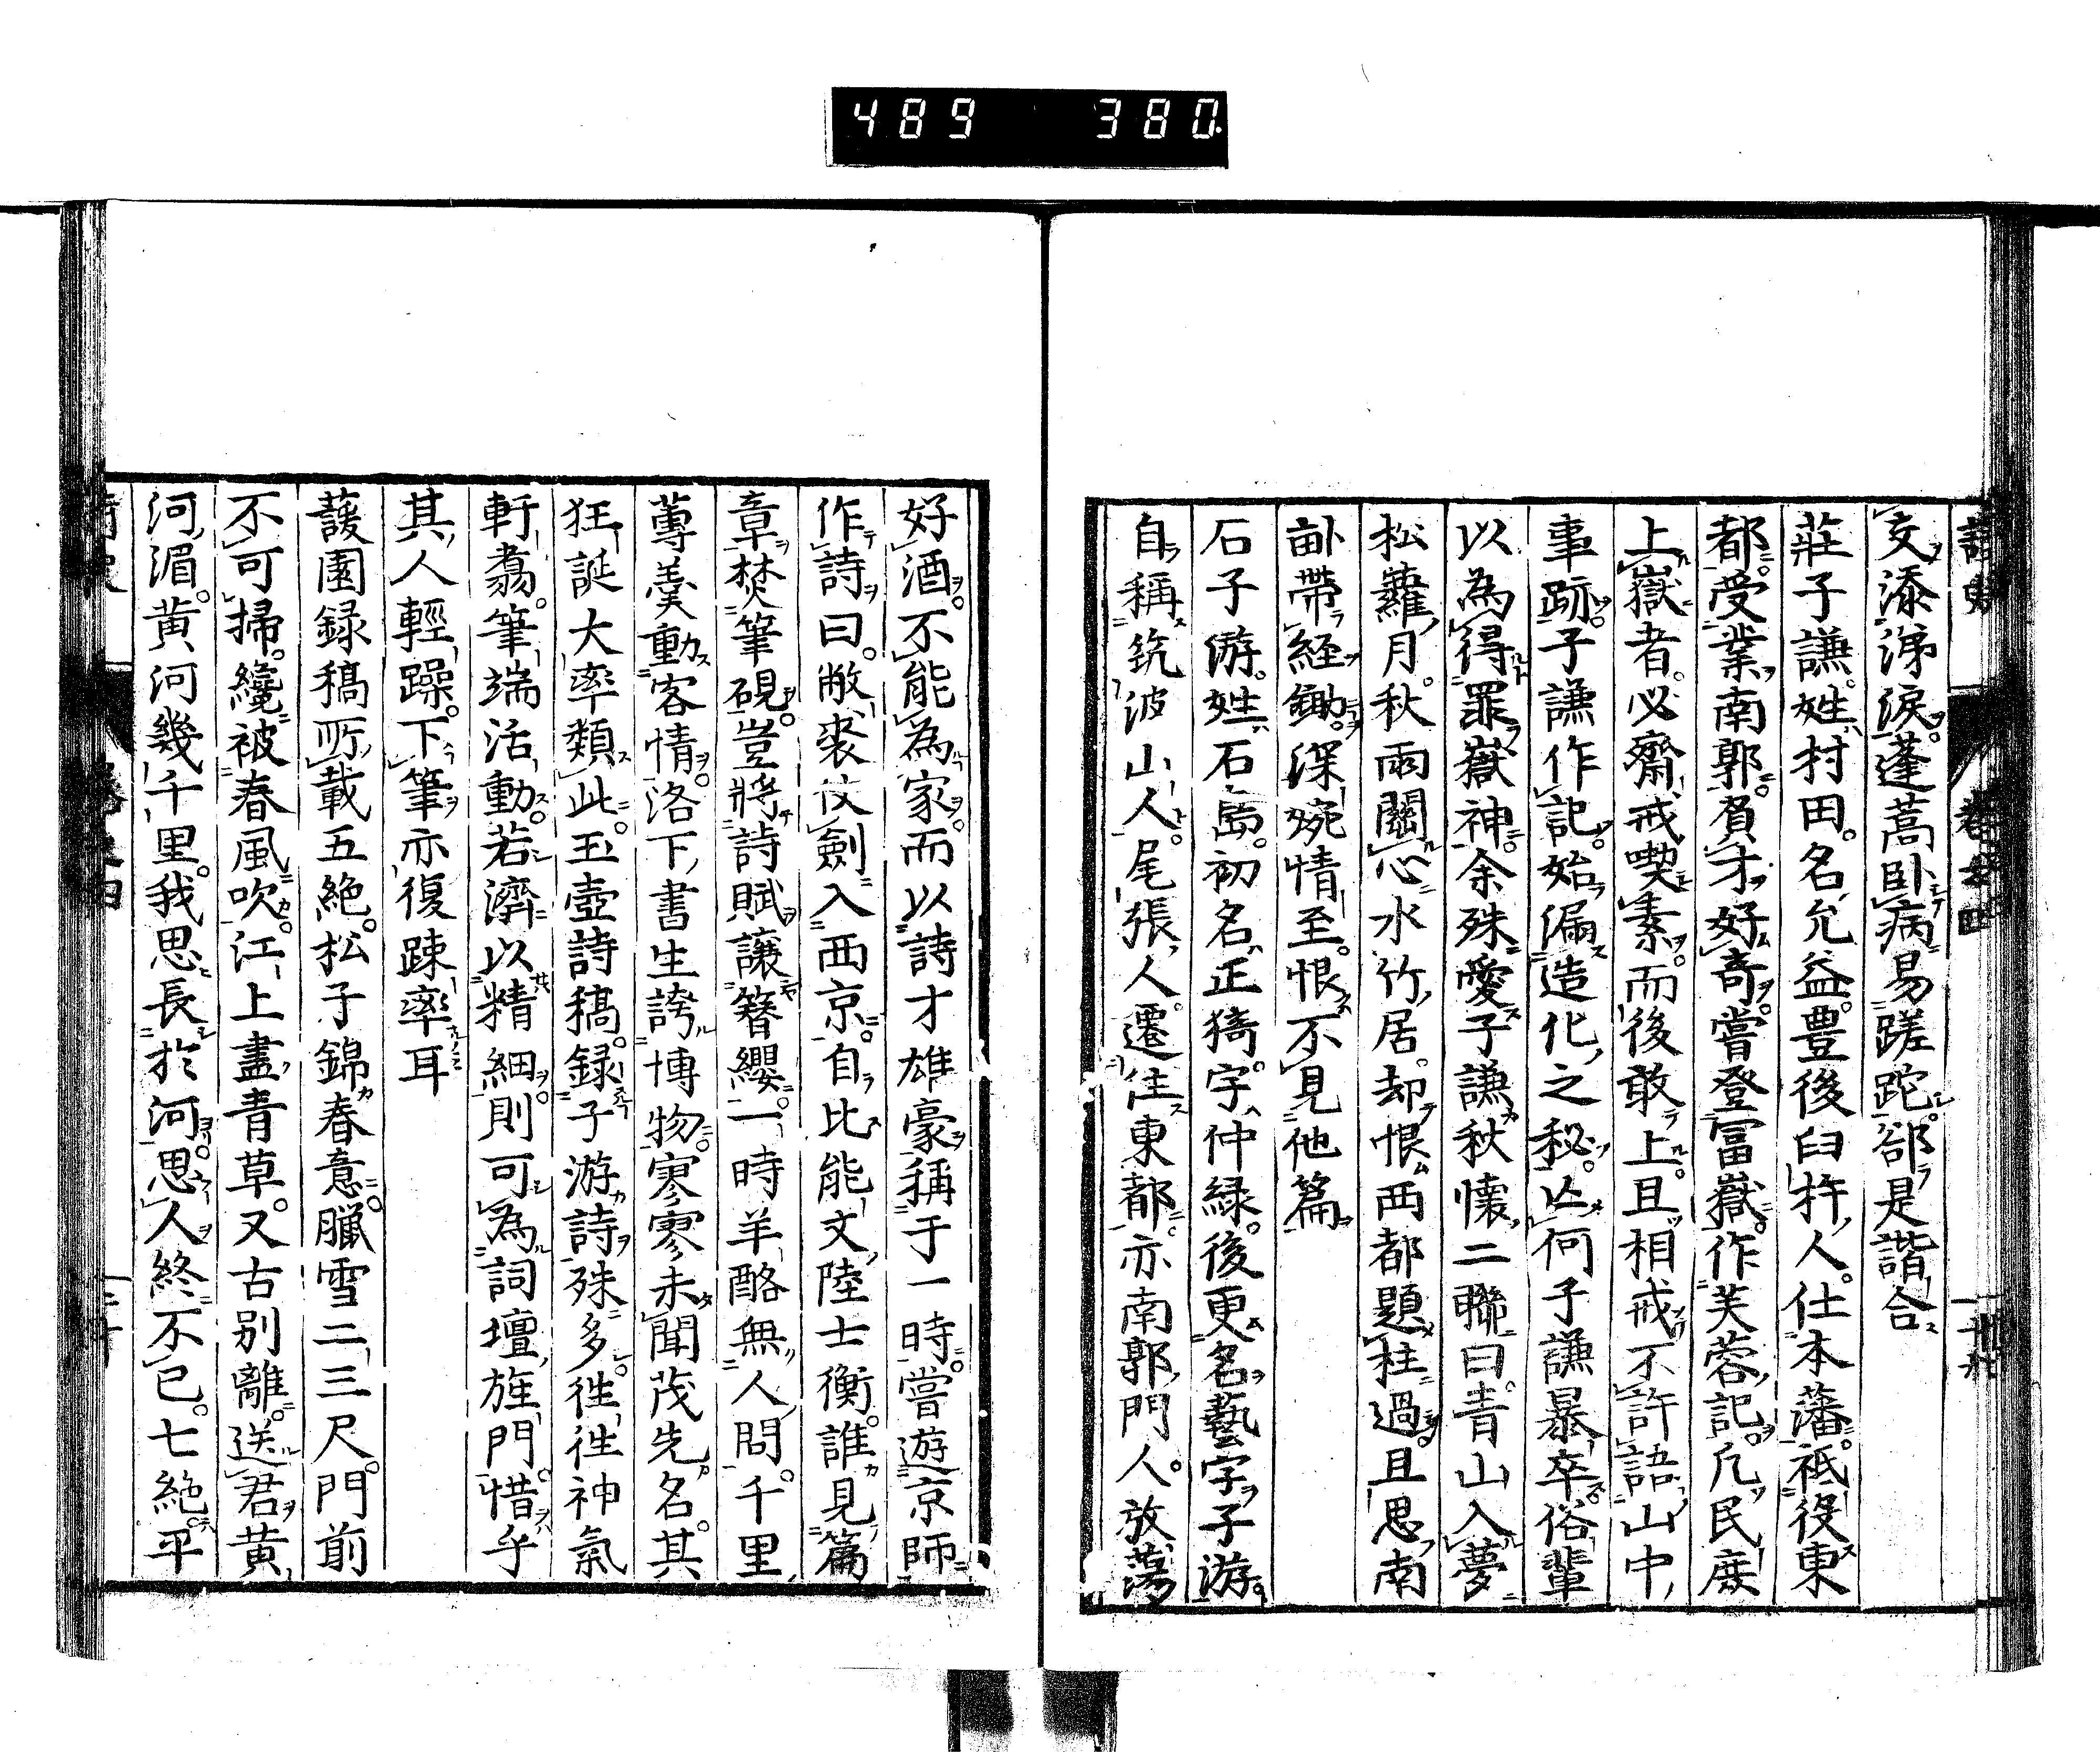 489 380
交添涕淚。蓬蒿臥病易蹉跎。郤是諧合
莊子謙。姓村田。名允益。豊後臼杵人。仕本藩。祗役東
都。受業南郭。負才好奇。嘗登富嶽。作芙蓉記。凡民庶
上嶽者。必齋戒喫素。而後敢上。且相戒不許語山中
事跡。子謙作記。始漏造化之秘。亡何子謙暴卒。俗輩
以為得罪嶽神。余殊愛子謙秋懷二聯曰。青山入夢
松蘿月。秋雨關心水竹居。却恨西都題柱過。且思南
畝帶経鋤。深婉情至。恨不見他篇
石子游。姓石島。初名正猗。字仲緑。後更名藝。字子游。
自稱筑波山人。尾張人。遷住東都。亦南郭門人。放蕩
好酒。不能為家。而以詩才雄豪稱于一時。嘗遊京師
作詩曰。敝裘仗劍入西京。自比能文陸士衡。誰見篇
章焚筆硯。豈將詩賦讓簪纓。一時羊酪無人問。千里
蓴羹動客情。洛下書生誇博物。寥寥未聞茂先名。其
狂誕大率類此。玉壺詩稿。録子游詩殊多。徃徃神氣
軒翥。筆端活動。若濟以精細。則可為詞壇旌門。惜乎
其人輕躁。下筆亦復踈率耳
蘐園録稿所載五絶。松子錦春意。臘雪二三尺。門前
不可掃。纔被春風吹。江上盡青草。又古別離。送君黄
河湄。黄河幾千里。我思長於河。思人終不已。七絶。平